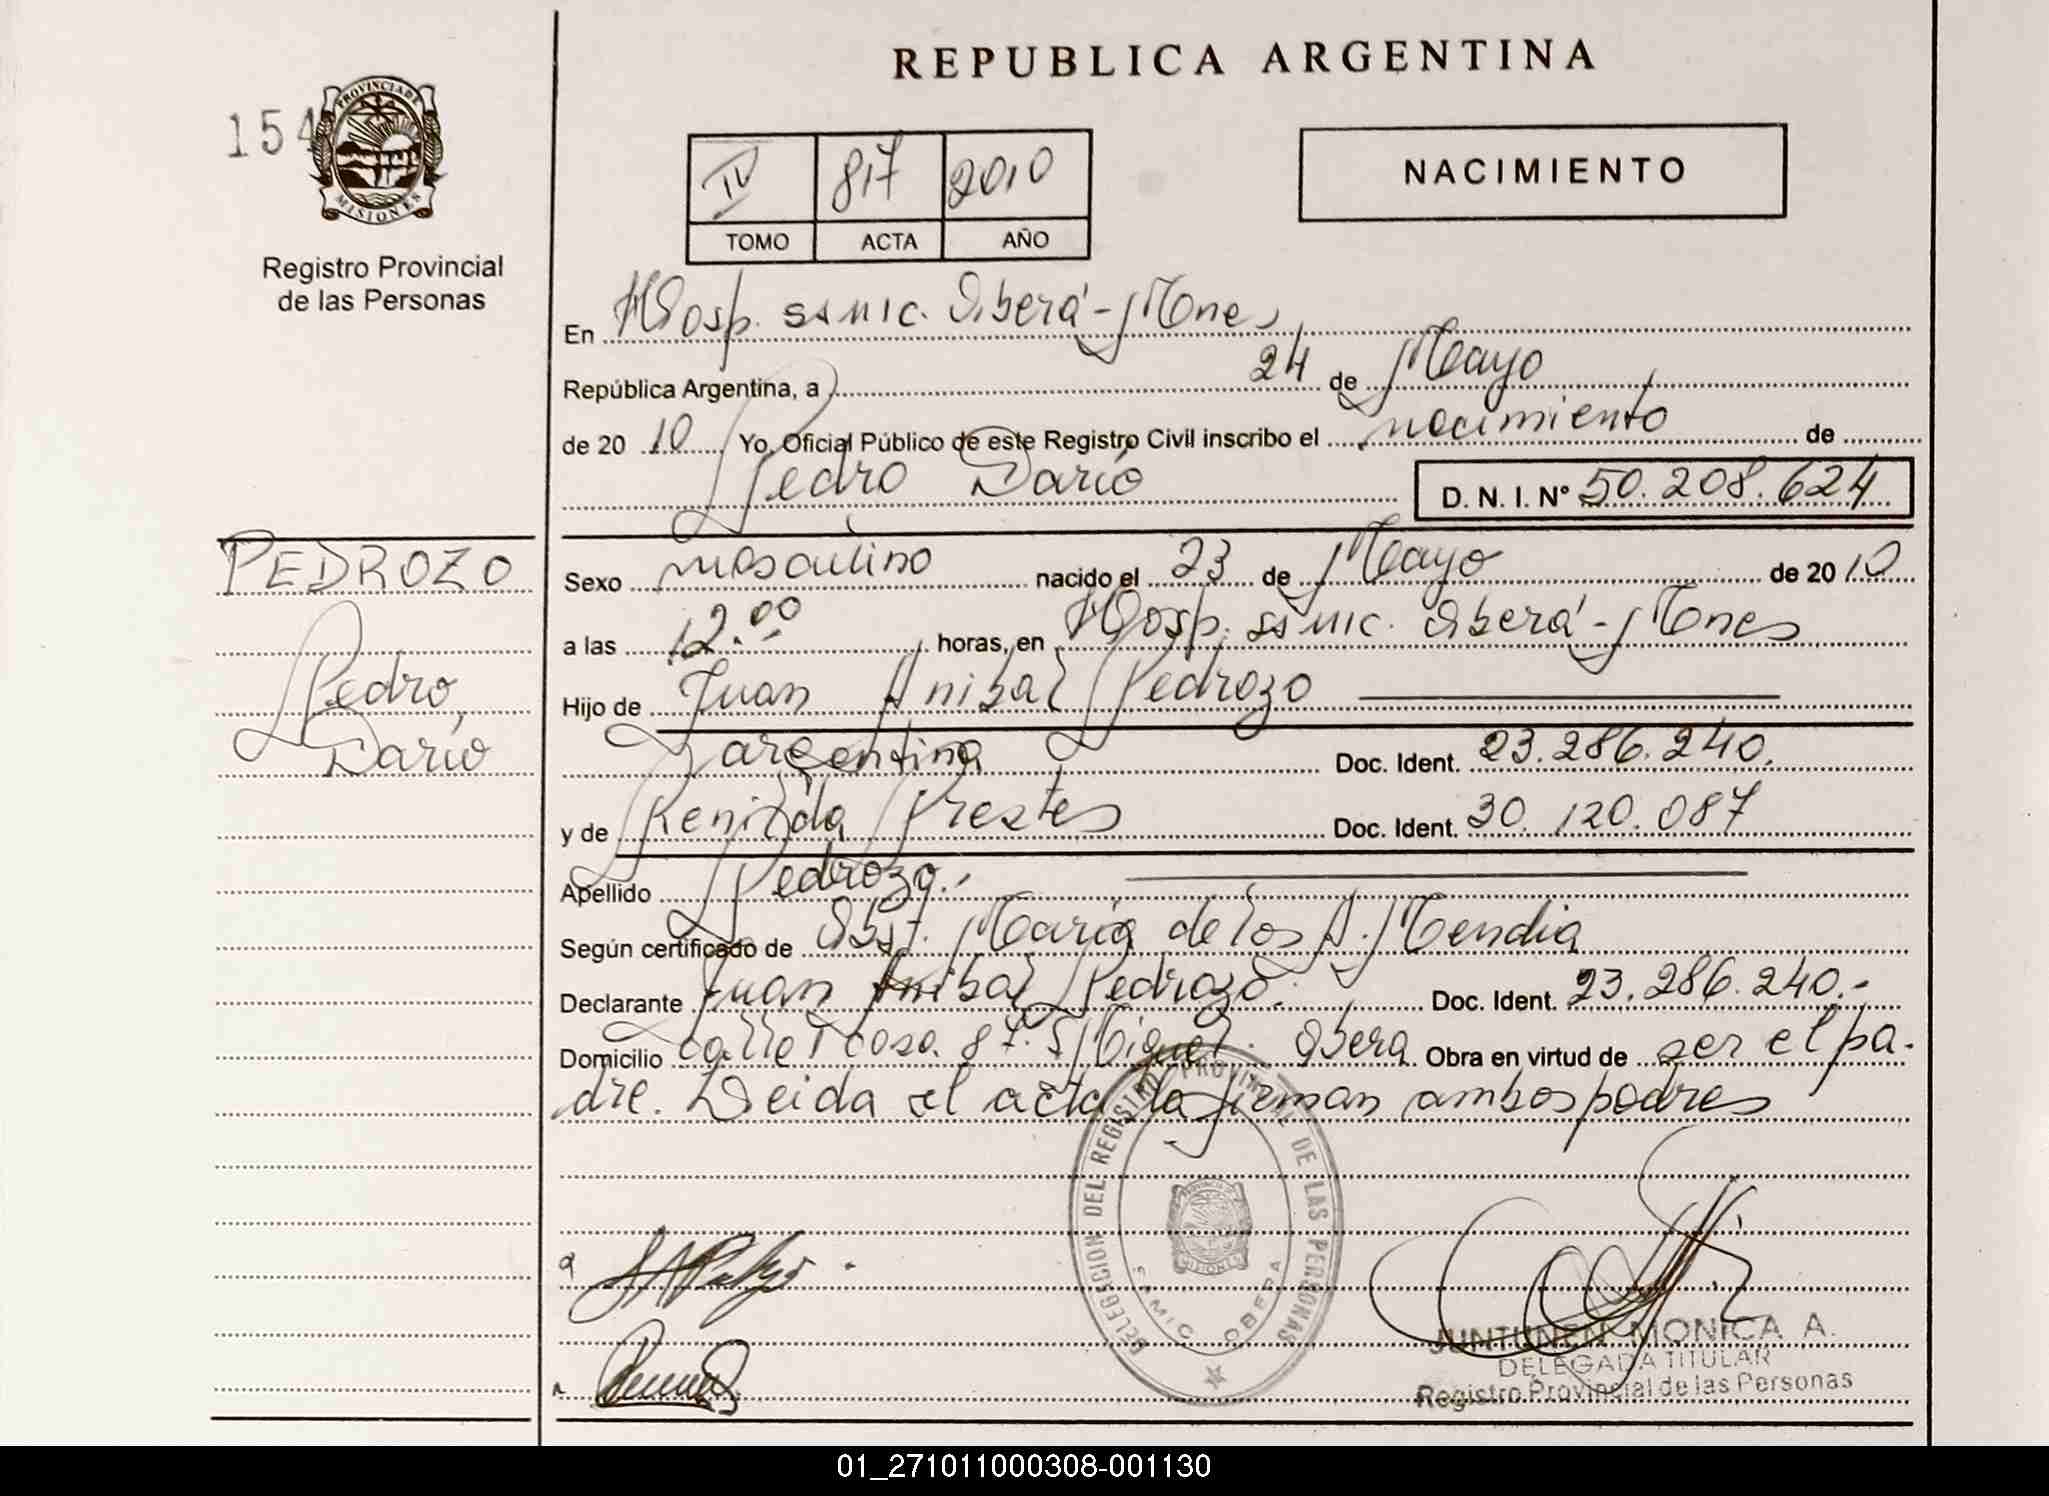 REPUBLICA ARGENTINA
154
PROVINCIA DE
MISIONES
Registro Provincial
de las Personas
IV 817 2010
TOMO ACTA AÑO
NACIMIENTO
En Hosp. SAMIC. Oberá - Mnes
República Argentina, a 24 de Mayo
de 2010 Yo, Oficial Público de este Registro Civil inscribo el nacimiento de
Pedro Darío D. N. I. Nº 50.208.624
PEDROZO
Pedro,
Darío
Sexo masculino nacido el 23 de Mayo de 2010
a las 12.00 horas, en Hosp. SAMIC. Oberá - Mnes
Hijo de Juan Anibal Pedrozo
argentina Doc. Ident. 23.286.240.
y de Prestes Doc. Ident. 30.120.087
Apellido Pedrozo.-
Según certificado de Obst. María de los A. Mendia
Declarante Juan Anibal Pedrozo. Doc. Ident. 23.286.240.-
Domicilio calle 87. S/Miguel. Oberá Obra en virtud de ser el pa-
dre. Leida el acta la firman ambos padres
DELEGACION DEL REGISTRO PROVINCIAL DE LAS PERSONAS
SAMIC OBERA
MISIONES
JUNTUNEN MONICA A.
DELEGADA TITULAR
Registro Provincial de las Personas
01_271011000308-001130